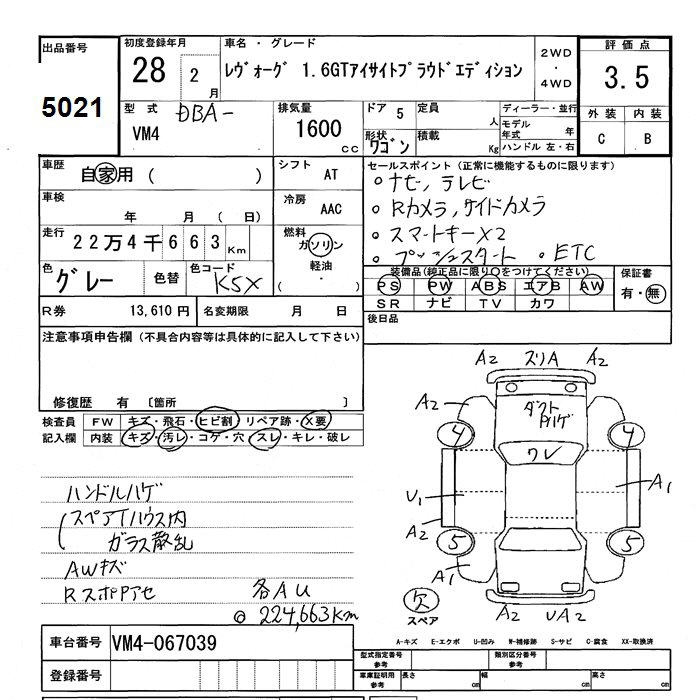 出品番号
5021
初度登録年月
28 2
月
車名・グレード
レヴォーグ 1.6GTアイサイトプラウドエディション
2WD
・
4WD
評価点
3.5
外装 内装
C B
型式 DBA-
VM4
排気量
1600
cc
ドア 5
形状 ワゴン
定員
人
積載
Kg
ディーラー・並行
モデル
年式 年
ハンドル 左・右
車歴
自家用 ( )
シフト
AT
車検
年 月 (日)
冷房
AAC
走行
22万4千663Km
燃料
ガソリン
軽油
・
色
グレー
色替
色コード
K5X
R券 13,610円
名変期限 月 日
セールスポイント(正常に機能するものに限ります)
。ナビ,テレビ
。Rカメラ,サイドカメラ
。スマートキーX2
。プッシュスタート 。ETC
装備品(純正品に限り〇をつけてください)
PS PW ABS エアB AW
SR ナビ TV カワ
保証書
有・無
後日品
注意事項申告欄(不具合内容等は具体的に記入して下さい)
修復歴 有 〔箇所 〕
検査員
記入欄
FW キズ・飛石・ヒビ割 リペア跡・X要
内装 キズ・汚レ・コゲ・穴 スレ・キレ・破レ
ハンドルハゲ
スペアTハウス内
ガラス散乱
AWキズ
RスポPアセ
各AU
◎ 224,663Km
A2 スリA A2
A2
ダクト
Pハゲ
4 4
ワレ
U1
A1
A2
5 5
A1
欠
スペア
A2 UA2
A-キズ E-エクボ U-凹み W-補修跡 S-サビ C-腐食 XX-取換済
車台番号 VM4-067039
登録番号
型式指定番号
参考
類別区分番号
参考
車庫証明用
参考
長さ cm
幅 cm
高さ cm